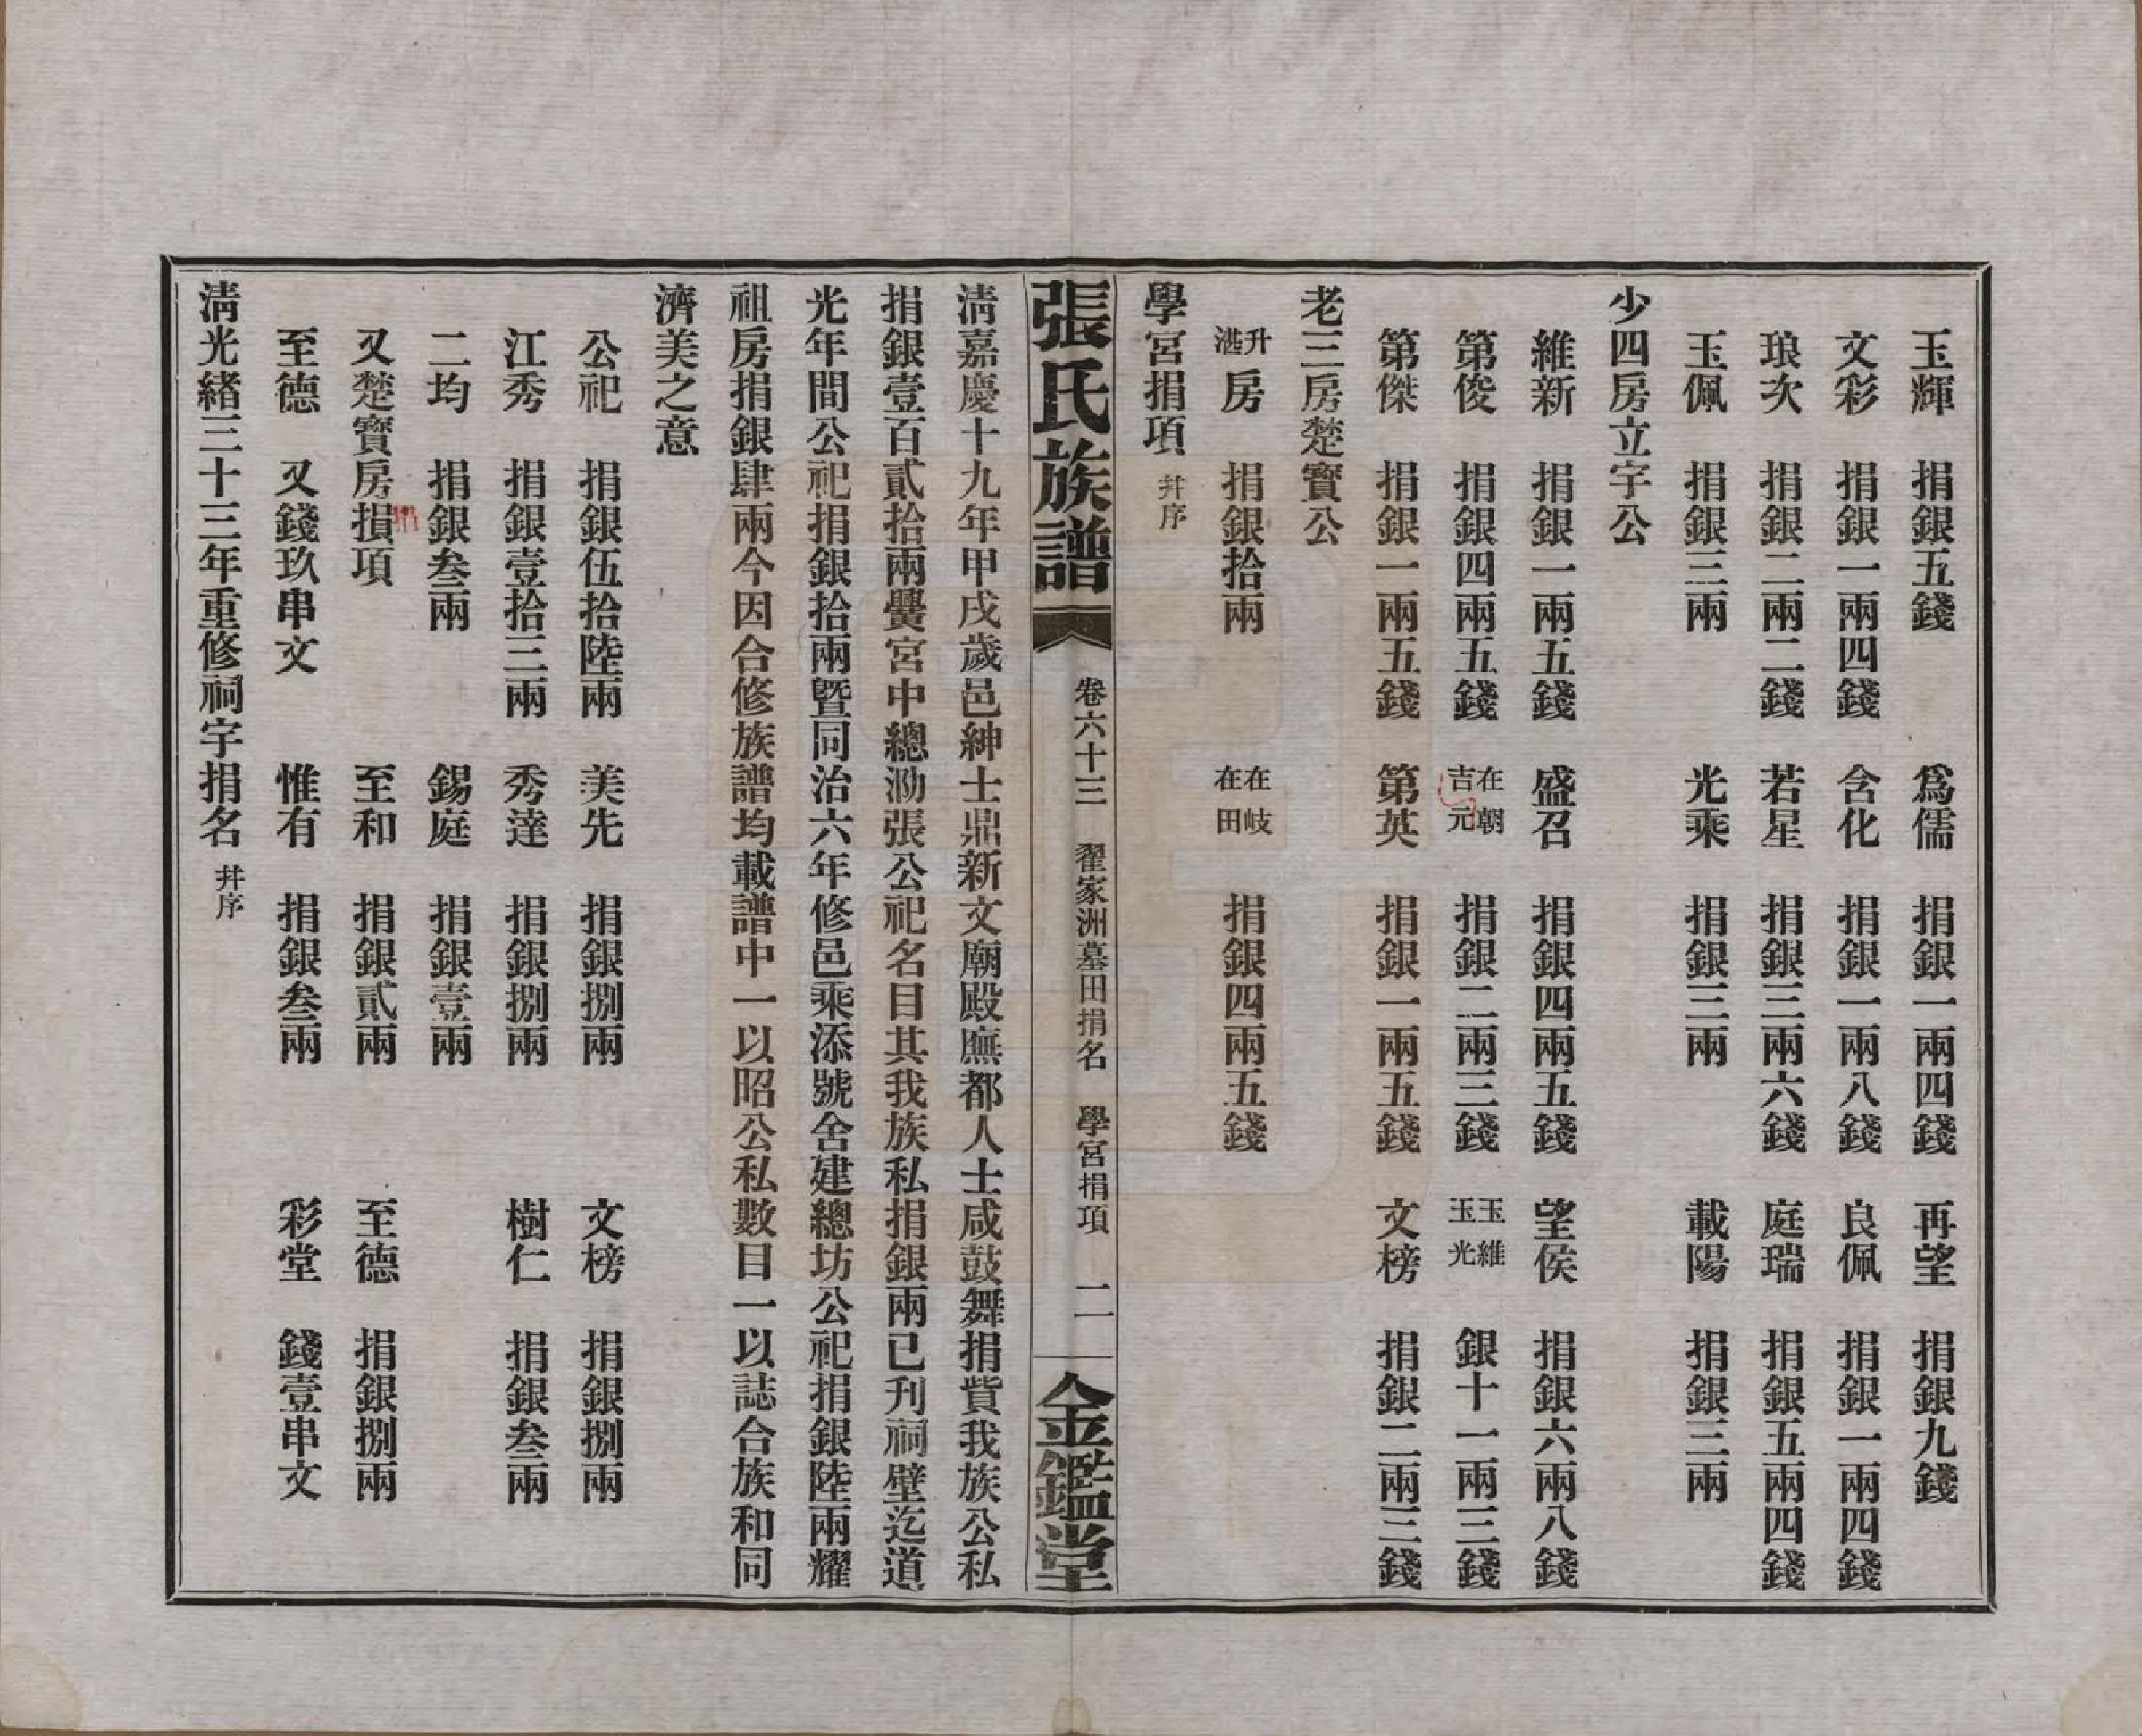 玉輝　捐銀五錢　爲儒　捐銀一兩四錢　再望　捐銀九錢
文彩　捐銀一兩四錢　含化　捐銀一兩八錢　良佩　捐銀一兩四錢
琅次　捐銀二兩二錢　若星　捐銀三兩六錢　庭瑞　捐銀五兩四錢
玉佩　捐銀三兩　光乘　捐銀三兩　載陽　捐銀三兩
少四房立宇公
維新　捐銀一兩五錢　盛召　捐銀四兩五錢　望侯　捐銀六兩八錢
第俊　捐銀四兩五錢　在朝吉元　捐銀二兩三錢　玉維玉光　銀十一兩三錢
第傑　捐銀一兩五錢　第英　捐銀一兩五錢　文榜　捐銀二兩三錢
老三房楚寶公
升湛房　捐銀拾兩　在岐在田　捐銀四兩五錢
學宮捐項　幷序
張氏族譜　卷六十三　翟家洲墓田捐名　學宮捐項　二　金鑑堂
淸嘉慶十九年甲戌歲邑紳士鼎新文廟殿廡都人士咸鼓舞捐貲我族公私
捐銀壹百貳拾兩黌宮中總泐張公祀名目其我族私捐銀兩已刊祠壁迄道
光年間公祀捐銀拾兩曁同治六年修邑乘添號舍建總坊公祀捐銀陸兩耀
祖房捐銀肆兩今因合修族譜均載譜中一以昭公私數目一以誌合族和同
濟美之意
公祀　捐銀伍拾陸兩　美先　捐銀捌兩　文榜　捐銀捌兩
江秀　捐銀壹拾三兩　秀達　捐銀捌兩　樹仁　捐銀叁兩
二均　捐銀叁兩　錫庭　捐銀壹兩
又楚寶房損項　至和　捐銀貳兩　至德　捐銀捌兩
捐
至德　又錢玖串文　惟有　捐銀叁兩　彩堂　錢壹串文
淸光緒三十三年重修祠宇捐名　幷序